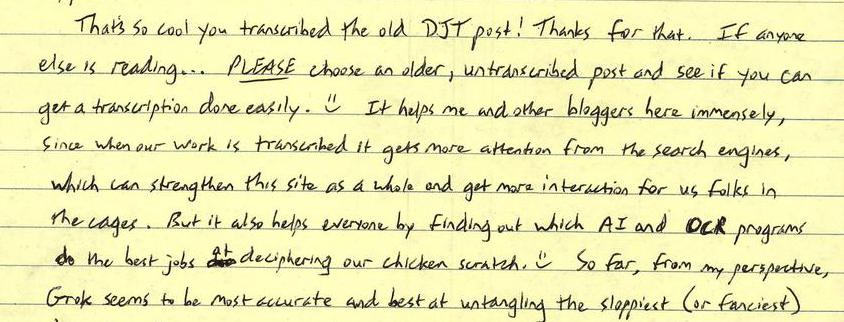 That's so cool you transcribed the old DJT post! Thanks for that. If anyone
else is reading... PLEASE choose an older, untranscribed post and see if you can
get a transcription done easily. :) It helps me and other bloggers here immensely,
since when our work is transcribed it gets more attention from the search engines,
which can strengthen this site as a whole and get more interaction for us folks in
the cages. But it also helps everyone by finding out which AI and OCR programs
do the best jobs at deciphering our chicken scratch. :) So far, from my perspective,
Grok seems to be most accurate and best at untangling the sloppiest (or fanciest)